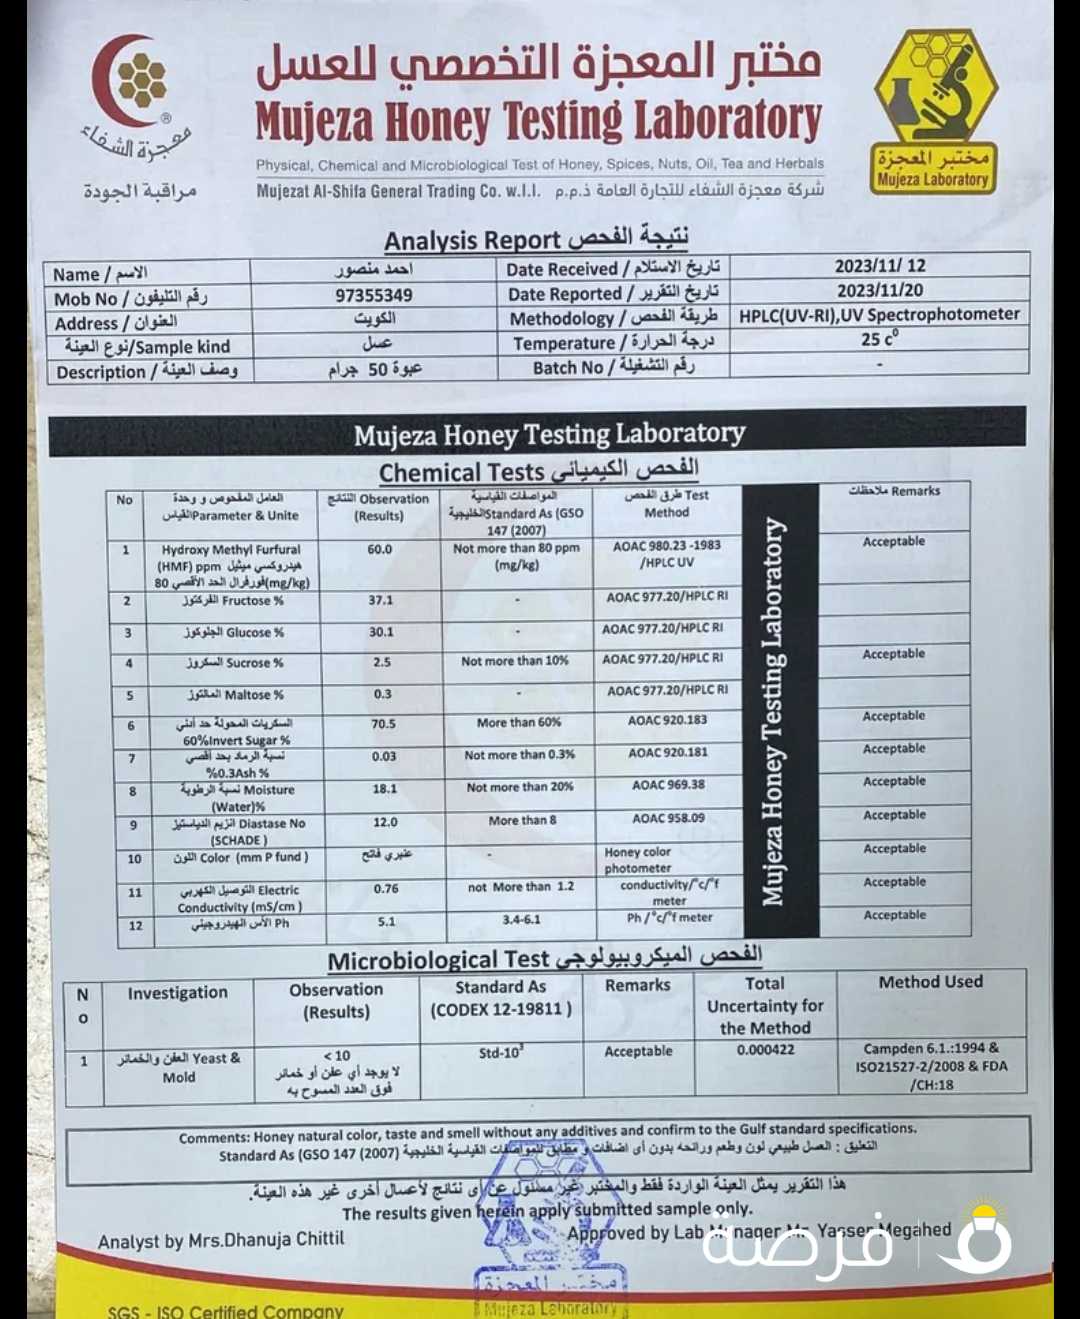 مختبر المعجزة التخصصي للعسل
Mujeza Honey Testing Laboratory
Physical, Chemical and Microbiological Test of Honey, Spices, Nuts, Oil, Tea and Herbals
Mujezat Al-Shifa General Trading Co. w.l.l. شركة معجزة الشفاء للتجارة العامة ذ.م.م
®
معجزة الشفاء
مراقبة الجودة
مختبر المعجزة
Mujeza Laboratory
Analysis Report نتيجة الفحص
Name / الاسم احمد منصور Date Received / تاريخ الاستلام 2023/11/ 12
Mob No / رقم التليفون 97355349 Date Reported / تاريخ التقرير 2023/11/20
Address / العنوان الكويت Methodology / طريقة الفحص HPLC(UV-RI),UV Spectrophotometer
نوع العينة/Sample kind عسل Temperature / درجة الحرارة 25 c⁰
Description / وصف العينة عبوة 50 جرام Batch No / رقم التشغيلة -
Mujeza Honey Testing Laboratory
Chemical Tests الفحص الكيميائي
No العامل المفحوص و وحدة القياسParameter & Unite النتائج Observation (Results) المواصفات القياسية الخليجيةStandard As (GSO 147 (2007) طرق الفحص Test Method ملاحظات Remarks
1 Hydroxy Methyl Furfural (HMF) ppm هيدروكسي ميثيل فورفرال الحد الأقصي 80 (mg/kg) 60.0 Not more than 80 ppm (mg/kg) AOAC 980.23 -1983 /HPLC UV Acceptable
2 الفركتوز Fructose % 37.1 - AOAC 977.20/HPLC RI
3 الجلوكوز Glucose % 30.1 - AOAC 977.20/HPLC RI
4 السكروز Sucrose % 2.5 Not more than 10% AOAC 977.20/HPLC RI Acceptable
5 المالتوز Maltose % 0.3 - AOAC 977.20/HPLC RI
6 السكريات المحولة حد أدني 60%Invert Sugar % 70.5 More than 60% AOAC 920.183 Acceptable
7 نسبة الرماد بحد أقصي %0.3Ash % 0.03 Not more than 0.3% AOAC 920.181 Acceptable
8 نسبة الرطوبة Moisture (Water)% 18.1 Not more than 20% AOAC 969.38 Acceptable
9 انزيم الدياستيز Diastase No (SCHADE ) 12.0 More than 8 AOAC 958.09 Acceptable
10 اللون Color (mm P fund ) عنبري فاتح - Honey color photometer Acceptable
11 التوصيل الكهربي Electric Conductivity (mS/cm ) 0.76 not More than 1.2 conductivity/°c/°f meter Acceptable
12 الأس الهيدروجيني Ph 5.1 3.4-6.1 Ph /°c/°f meter Acceptable
Mujeza Honey Testing Laboratory
Microbiological Test الفحص الميكروبيولوجي
No Investigation Observation (Results) Standard As (CODEX 12-19811 ) Remarks Total Uncertainty for the Method Method Used
1 العفن والخمائر Yeast & Mold < 10 لا يوجد أي عفن أو خمائر فوق العدد المسوح به Std-10³ Acceptable 0.000422 Campden 6.1.:1994 & ISO21527-2/2008 & FDA /CH:18
Comments: Honey natural color, taste and smell without any additives and confirm to the Gulf standard specifications.
التعليق : العسل طبيعي لون وطعم ورائحه بدون أى اضافات و مطابق للمواصفات القياسية الخليجية Standard As (GSO 147 (2007)
هذا التقرير يمثل العينة الواردة فقط والمختبر غير مسئول عن أى نتائج لأعسال أخرى غير هذه العينة.
The results given herein apply submitted sample only.
Analyst by Mrs.Dhanuja Chittil Approved by Lab Manager Mr. Yasser Megahed
فرصة
مختبر المعجزة
Mujeza Laboratory
SGS - ISO Certified Company